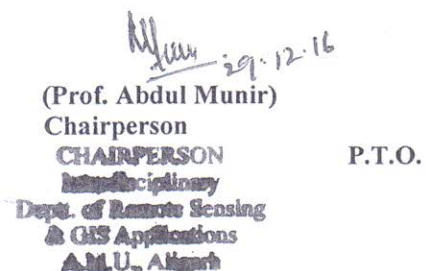 29.12.16
(Prof. Abdul Munir)
Chairperson
P.T.O.
CHAIRPERSON
Interdisciplinary
Deptt. of Remote Sensing
& GIS Applications
A.M.U., Aligarh